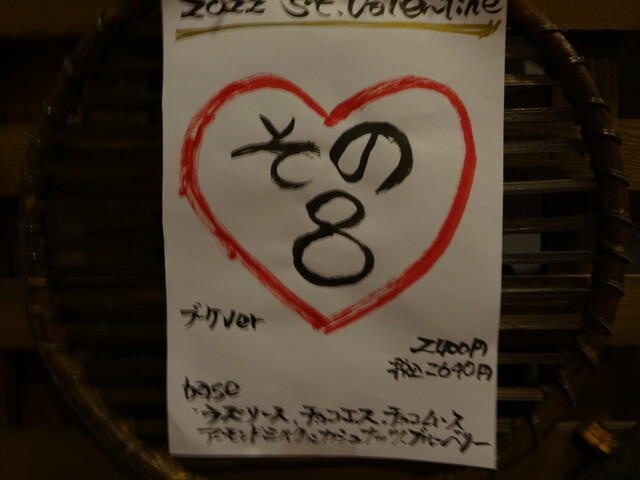 2022 St. Valentine
その
8
ブーケver
2400円
税込2640円
base
ラズソース、チョコエス、チョコムース
アーモンドミルク&カシュナッツ、ブルーベリー